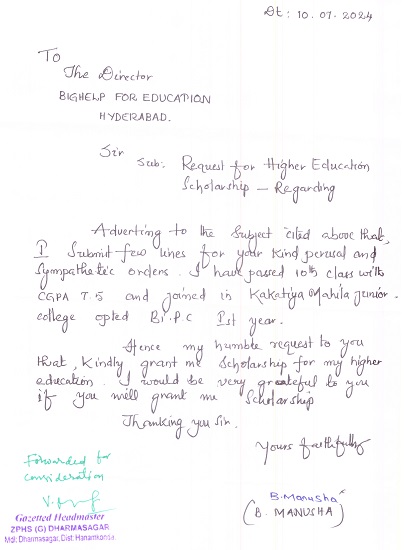 Dt: 10.07.2024
To
The Director
BIGHELP FOR EDUCATION
HYDERABAD.
Sir
Sub: Request for Higher Education
Scholarship - Regarding
Adverting to the Subject cited above that,
I Submit few lines for your kind perusal and
Sympathetic orders. I have passed 10th class with
CGPA 7.5 and joined in Kakatiya Mahila junior.
college opted Bi.P.C Ist year.
Hence my humble request to you
that, kindly grant me Scholarship for my higher
education. I would be very grateful to you
if you will grant me Scholarship
Thanking you Sir.
Yours faithfully
Forwarded for
consideration
B. Manusha
(B. MANUSHA)
Gazetted Headmaster
ZPHS (G) DHARMASAGAR
Mdl: Dharmasagar, Dist: Hanamkonda.